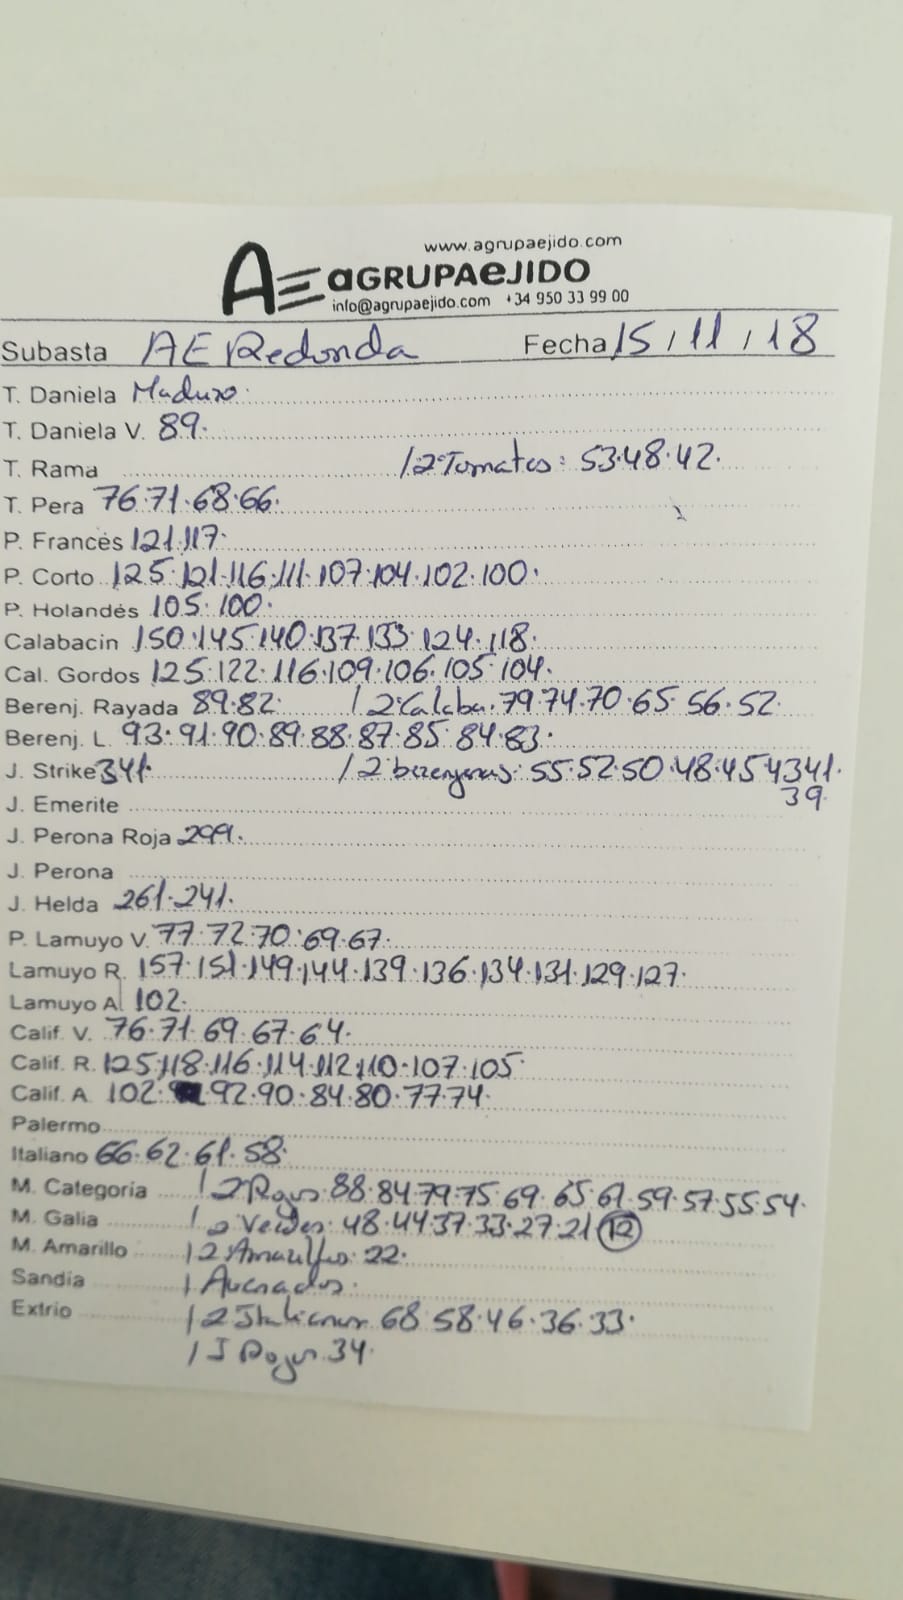 www.agrupaejido.com
AE aGRUPAeJIDO
info@agrupaejido.com +34 950 33 99 00
Subasta AE Redonda Fecha 15/11/18
T. Daniela Maduro.
T. Daniela V. 89.
T. Rama /2 Tomates: 53.48.42.
T. Pera 76.71.68.66.
P. Francés 121.117.
P. Corto 125.121.116.111.107.104.102.100.
P. Holandés 105.100.
Calabacin 150.145.140.137.133.124.118.
Cal. Gordos 125.122.116.109.106.105.104.
Berenj. Rayada 89.82. /2 Calaba. 79.74.70.65.56.52.
Berenj. L. 93.91.90.89.88.87.85.84.83.
J. Strike 341. /2 berenjenas: 55.52.50.48.45.43.41.
39.
J. Emerite
J. Perona Roja 299.
J. Perona
J. Helda 261.241.
P. Lamuyo V. 77.72.70.69.67.
Lamuyo R. 157.151.149.144.139.136.134.131.129.127.
Lamuyo A. 102.
Calif. V. 76.71.69.67.64.
Calif. R. 125.118.116.114.112.110.107.105.
Calif. A. 102. 92.90.84.80.77.74.
Palermo
Italiano 66.62.61.58.
M. Categoria /2 Rojos: 88.84.79.75.69.65.61.59.57.55.54.
M. Galia /2 Verdes: 48.44.37.33.27.21 (12)
M. Amarillo /2 Amarillos: 22.
Sandía
Extrio /2 Italianos 68.58.46.36.33.
Rojos 34.